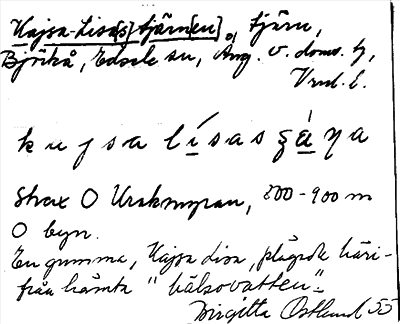 Kajsa-Lisa[s]tjärn[en], tjärn,
Björkå, Edsele sn, Ång. v. doms. h,
k u j s a l í s a s
Strax O Uraknyran, 800-900 m
O byn.
En gumma, Kajsa Lisa, plägade häri-
från hämta "hälsovatten".
Birgitta Östlund 55